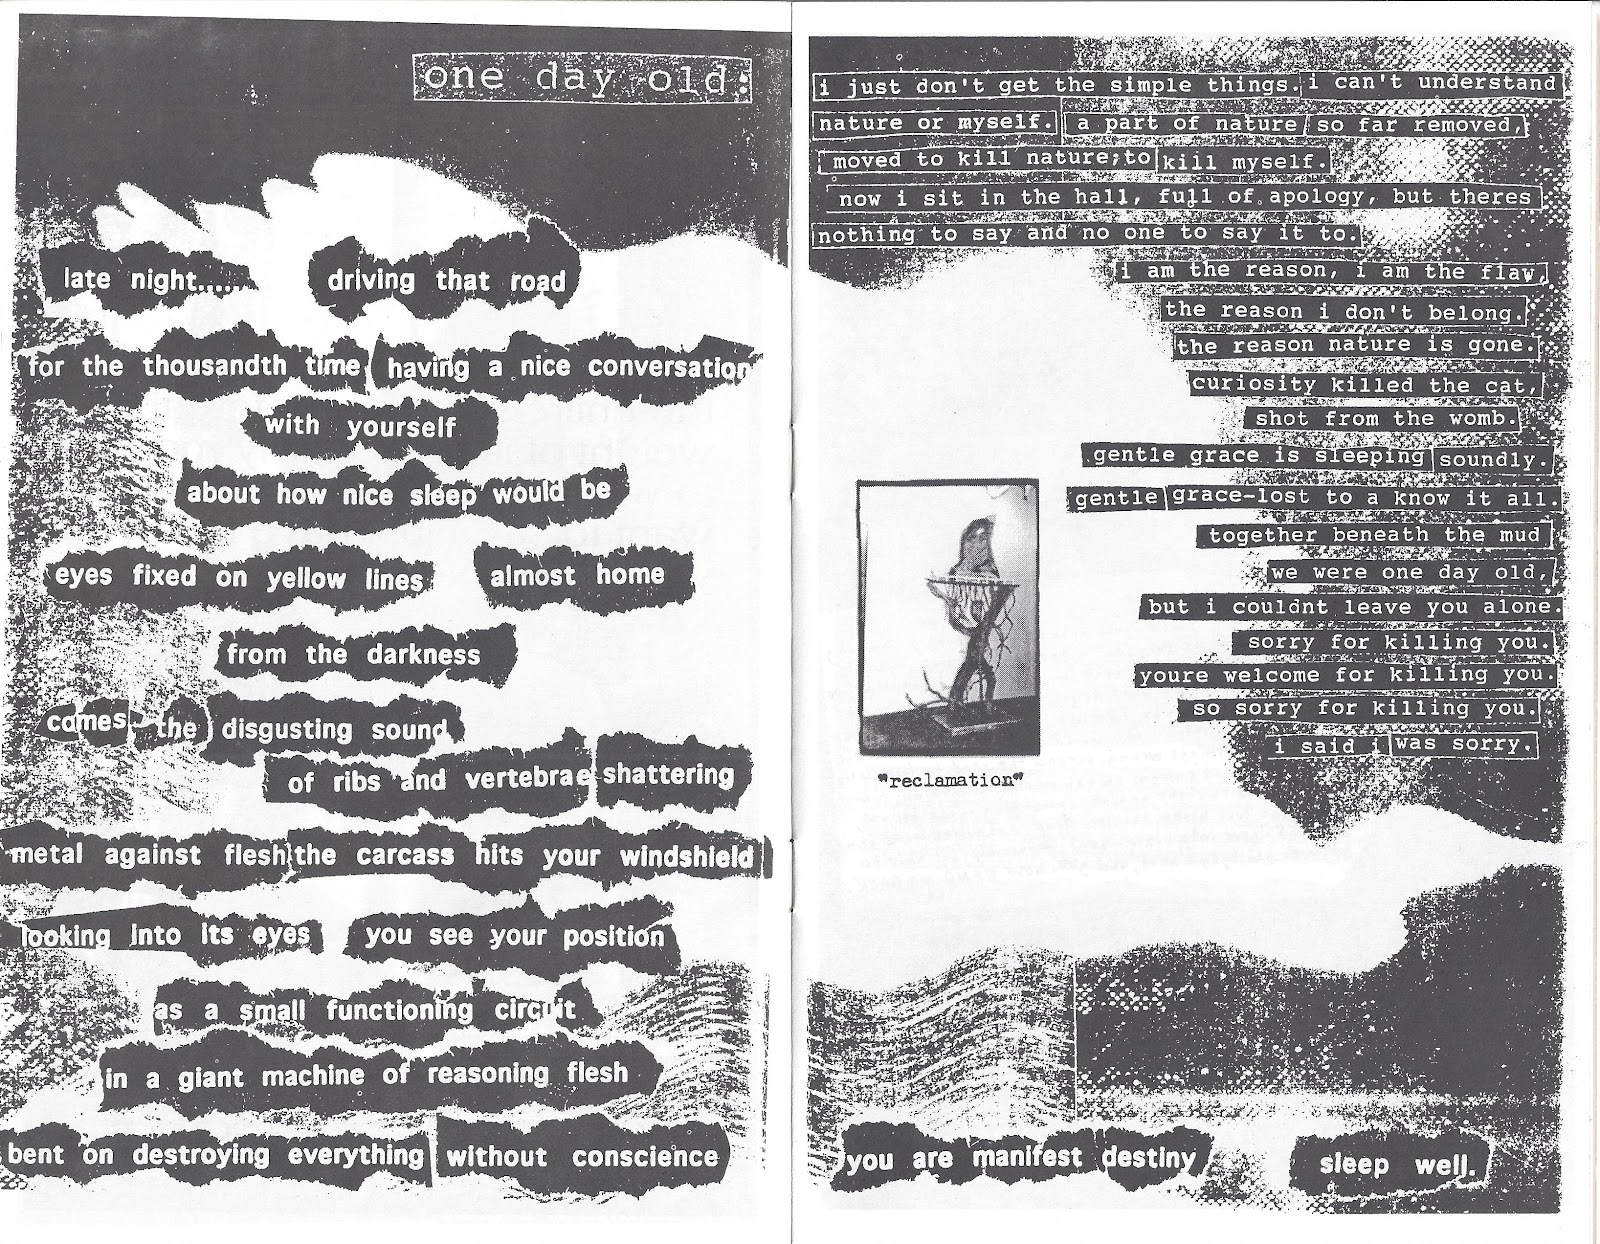 one day old:
late night..... driving that road
for the thousandth time having a nice conversation
with yourself
about how nice sleep would be
eyes fixed on yellow lines almost home
from the darkness
comes the disgusting sound
of ribs and vertebrae shattering
metal against flesh the carcass hits your windshield
looking into its eyes you see your position
as a small functioning circuit
in a giant machine of reasoning flesh
bent on destroying everything without conscience
i just don't get the simple things. i can't understand
nature or myself. a part of nature so far removed,
moved to kill nature; to kill myself.
now i sit in the hall, full of apology, but theres
nothing to say and no one to say it to.
i am the reason, i am the flaw,
the reason i don't belong.
the reason nature is gone.
curiosity killed the cat,
shot from the womb.
gentle grace is sleeping soundly.
gentle grace-lost to a know it all.
together beneath the mud
we were one day old,
but i couldnt leave you alone.
sorry for killing you.
youre welcome for killing you.
so sorry for killing you.
i said i was sorry.
"reclamation"
you are manifest destiny sleep well.